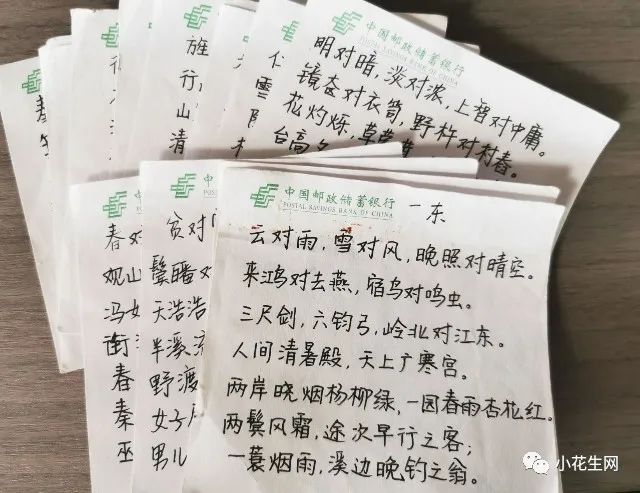 中国邮政储蓄银行
POSTAL SAVINGS BANK OF CHINA
明对暗，淡对浓，上智对中庸。
镜奁对衣笥，野杵对村舂。
花灼烁，草
台高
中国邮政储蓄银行
POSTAL SAVINGS BANK OF CHINA
一东
云对雨，雪对风，晚照对晴空。
来鸿对去燕，宿鸟对鸣虫。
三尺剑，六钧弓，岭北对江东。
人间清暑殿，天上广寒宫。
两岸晓烟杨柳绿，一园春雨杏花红。
两鬓风霜，途次早行之客；
一蓑烟雨，溪边晚钓之翁。
中国
POSTAL
贫对
鬓皤对
天浩浩
半溪流
野渡
女子
男儿
春对
观山
冯
衡
春
秦
巫
行
山
清
雪
小花生网